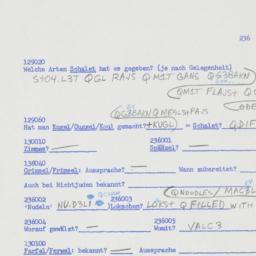 236
129020
Welche Arten Schalet hat es gegeben? (je nach Gelegenheit)
ST04.L3T QGL RAJS QM1T GANS QG3BAKN
QM1T FLAJST Q
QG3BAKN QMESLST PAJS
129060
Hat man Kugel/Gunnel/Koul gemacht? +KUGL) = Schalet? QDIF
130010 236001
Zimmes? — Spätzel? —
138040
Grimsel/Frimsel: Aussprache? — Wann zubereitet?
Auch bei Nichtjuden bekannt?
QNUDLES/
236002 236003
'Nudeln' NU.D3LI Lokschen? LOKST QFILLED WITH
236004 236005
Worauf gewälgt? — Womit? VALC3
130100
Farfel/Fermel: bekannt? — Aussprache